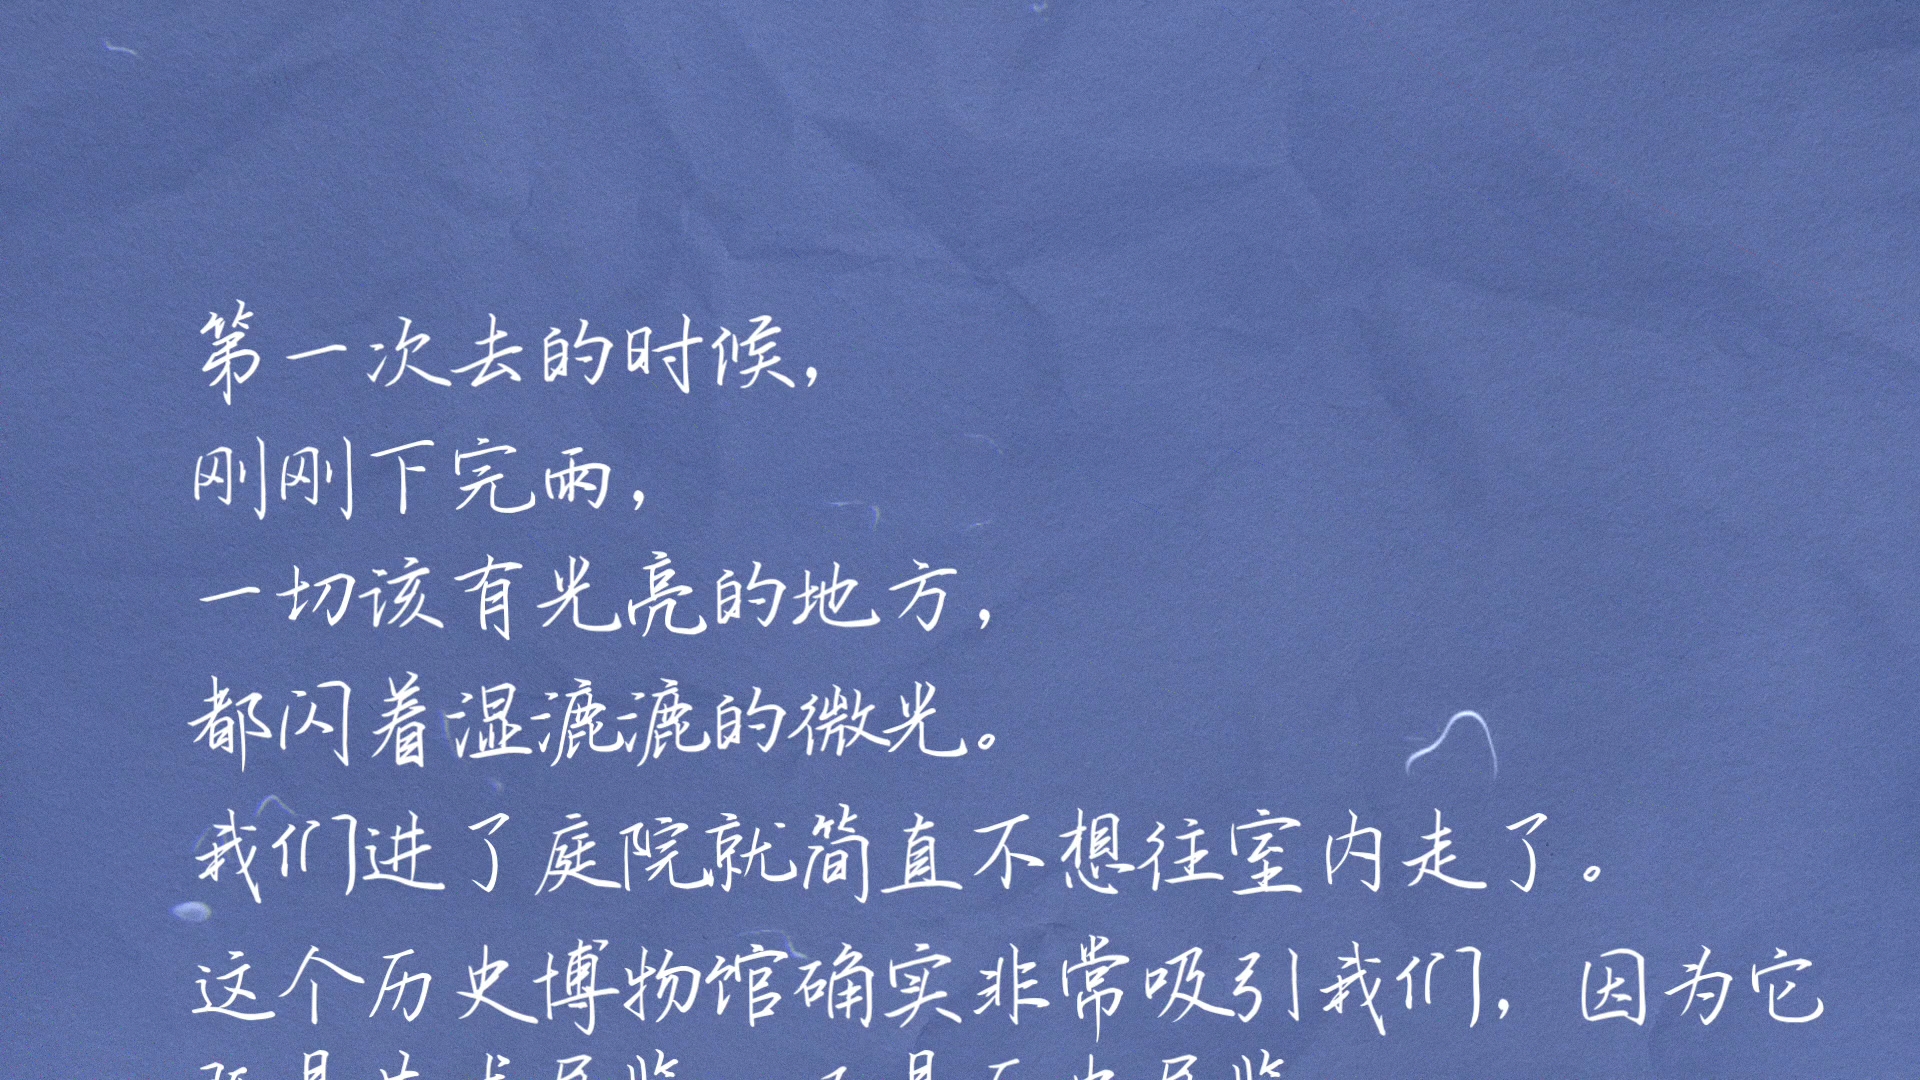 第一次去的时候，
刚刚下完雨，
一切该有光亮的地方，
都闪着湿漉漉的微光。
我们进了庭院就简直不想往室内走了。
这个历史博物馆确实非常吸引我们，因为它